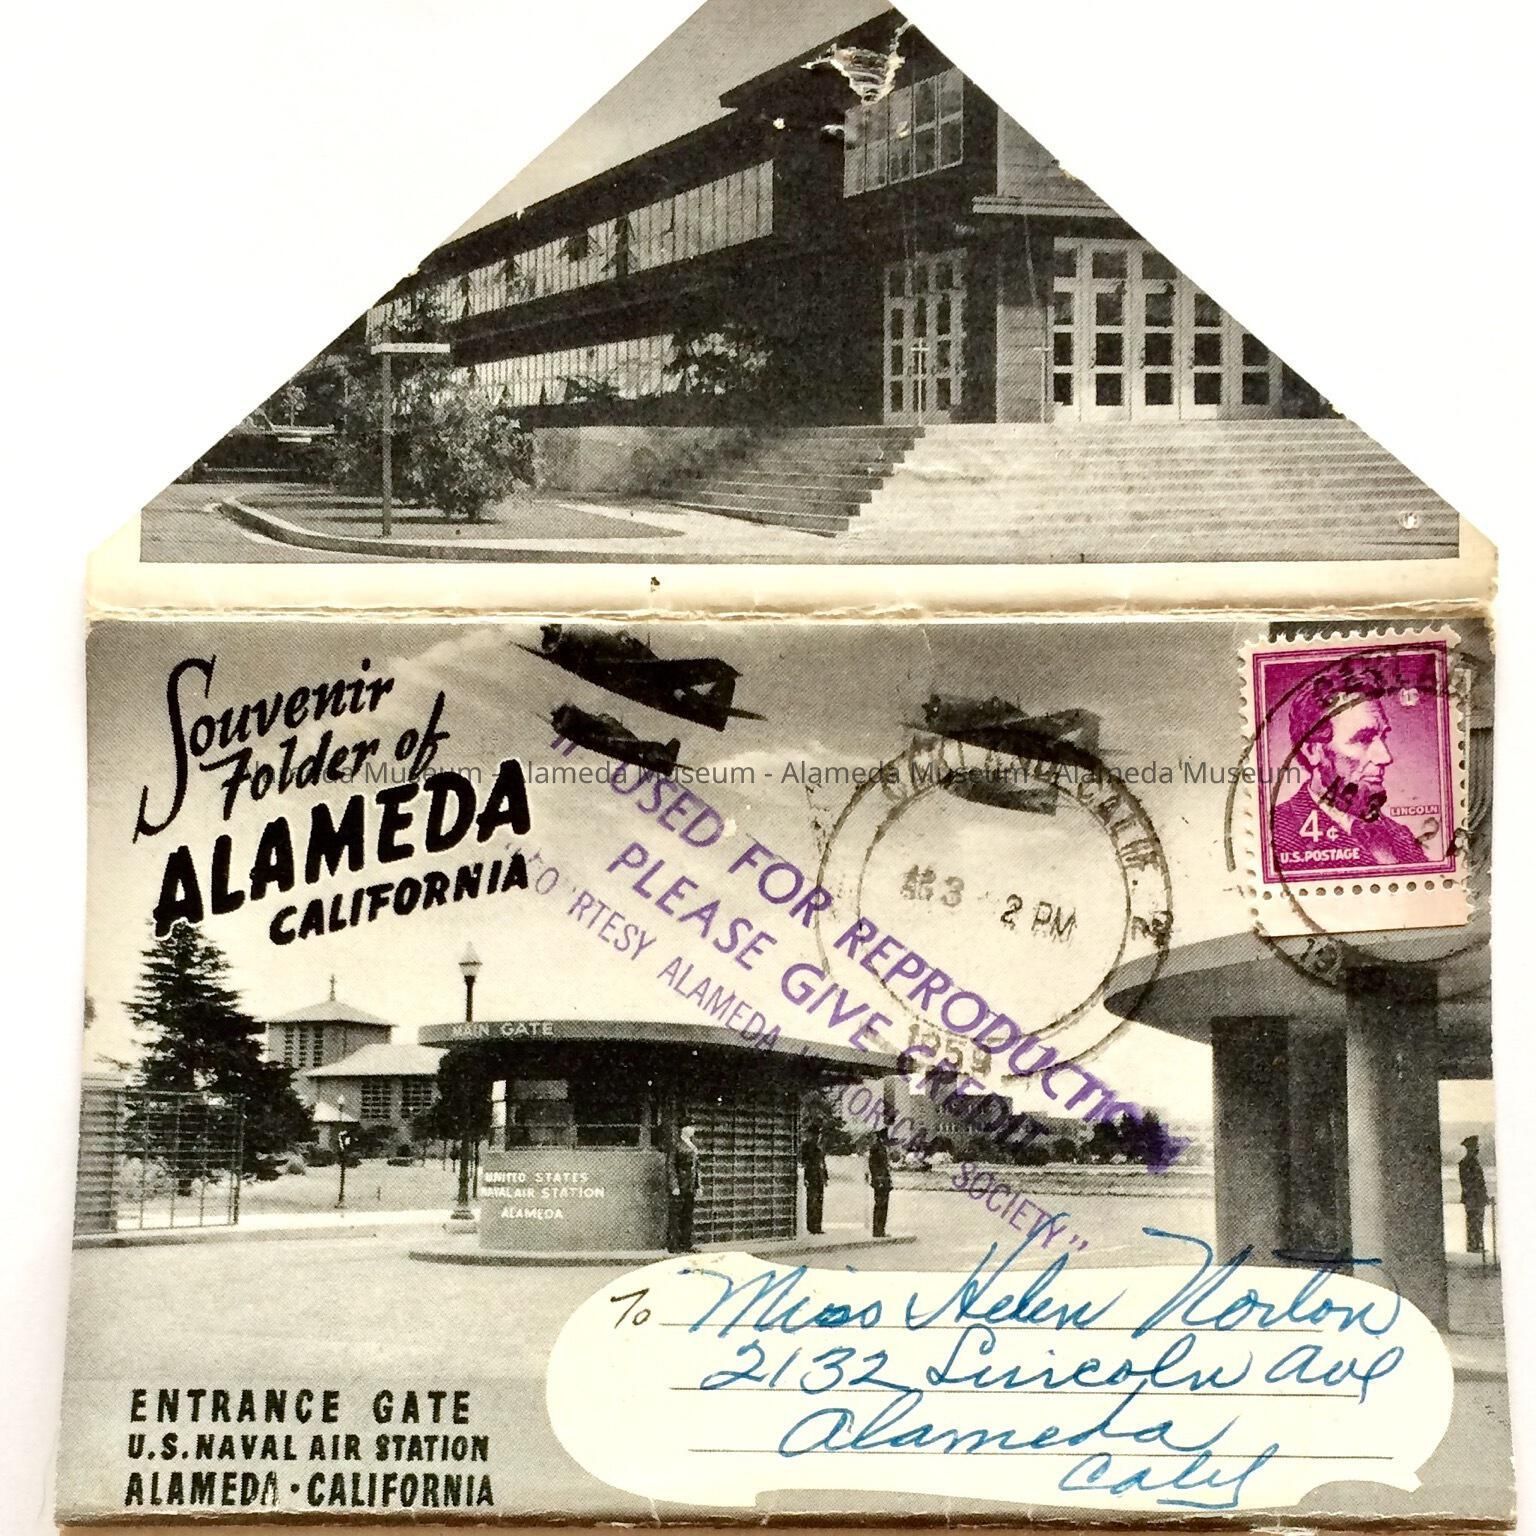 Souvenir
Folder of
ALAMEDA
CALIFORNIA
Alameda Museum - Alameda Museum - Alameda Museum - Alameda Museum
"USED FOR REPRODUCTION
PLEASE GIVE CREDIT
"COURTESY ALAMEDA HISTORICAL SOCIETY"
CALIF. 2
AG 3
2 PM
1959
AG 3
2 P
LINCOLN
4¢
U.S. POSTAGE
MAIN GATE
UNITED STATES
NAVAL AIR STATION
ALAMEDA
To Miss Helen Norton
2132 Lincoln Ave
Alameda
Calif
ENTRANCE GATE
U.S. NAVAL AIR STATION
ALAMEDA • CALIFORNIA